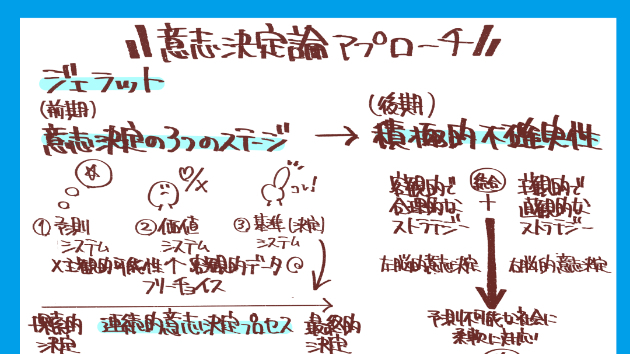 意志決定論アプローチ
ジェラット
(前期)
意志決定の3つのステージ
(後期)
積極的不確実性
①予測
システム
②価値
システム
♡/×
③基準(決定)
システム
コレ!
×主観的可能性↑ 客観的データ◎
フリーチョイス
連続的意志決定プロセス
最終的
決定
客観的で
合理的な
ストラテジー
統合
+
主観的で
直観的な
ストラテジー
左脳的意志決定
右脳的意志決定
予測不可能な社会に
柔軟に対応